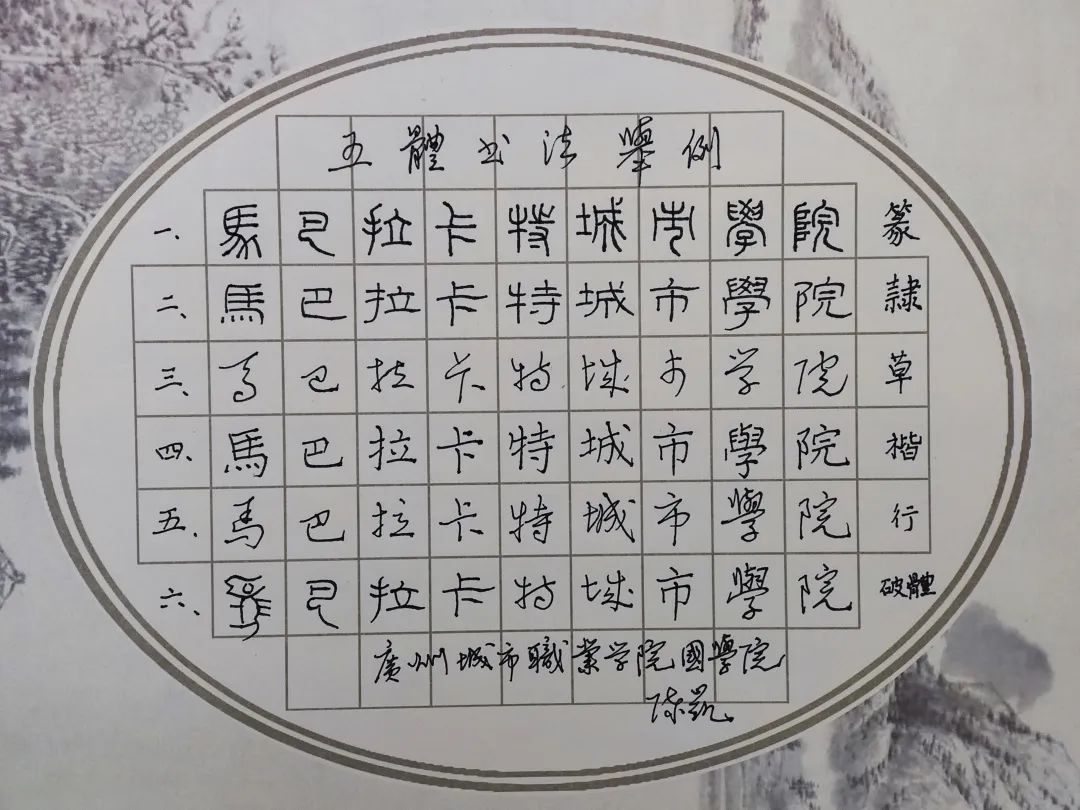 五體书法舉例
一、馬巴拉卡特城市學院 篆
二、馬巴拉卡特城市學院 隸
三、马巴拉卡特城市学院 草
四、馬巴拉卡特城市學院 楷
五、馬巴拉卡特城市學院 行
六、馬巴拉卡特城市學院 破體
廣州城市職業学院國學院
陈凯